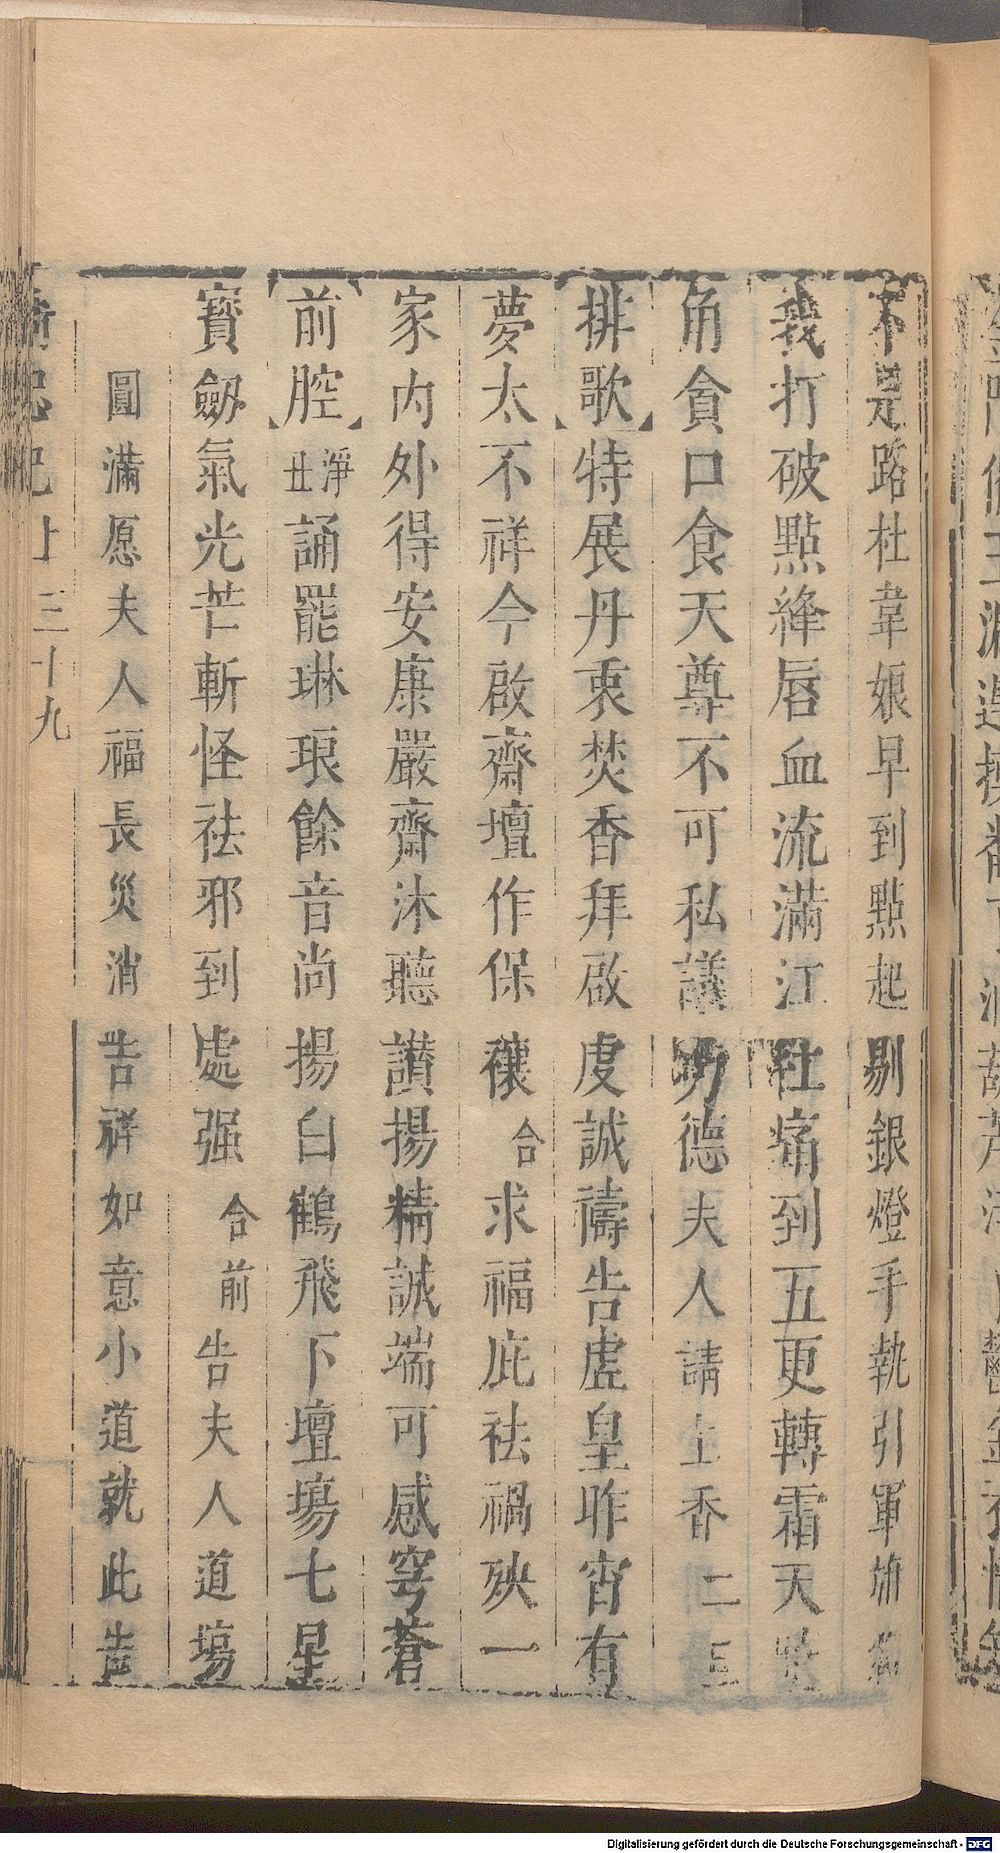 不是路杜韋娘早到點起剔銀燈手執引軍旂
義打破點絳唇血流滿江杜痛到五更轉霜天
角貪口食天尊不可私議功德夫人請上香二三
排歌特展丹衷焚香拜啟虔誠禱告虛皇昨宵有
夢太不祥今啟齋壇作保穰合求福庇祛禍殃一
家内外得安康嚴齋沐聽讃揚精誠端可感穹蒼
前腔淨丑誦罷琳琅餘音尚揚白鶴飛下壇塲七星
寶劔氣光芒斬怪祛邪到處强合前告夫人道塲
圓滿愿夫人福長災消吉祥如意小道就此告
忠記上 三十九
Digitalisierung gefördert durch die Deutsche Forschungsgemeinschaft - DFG